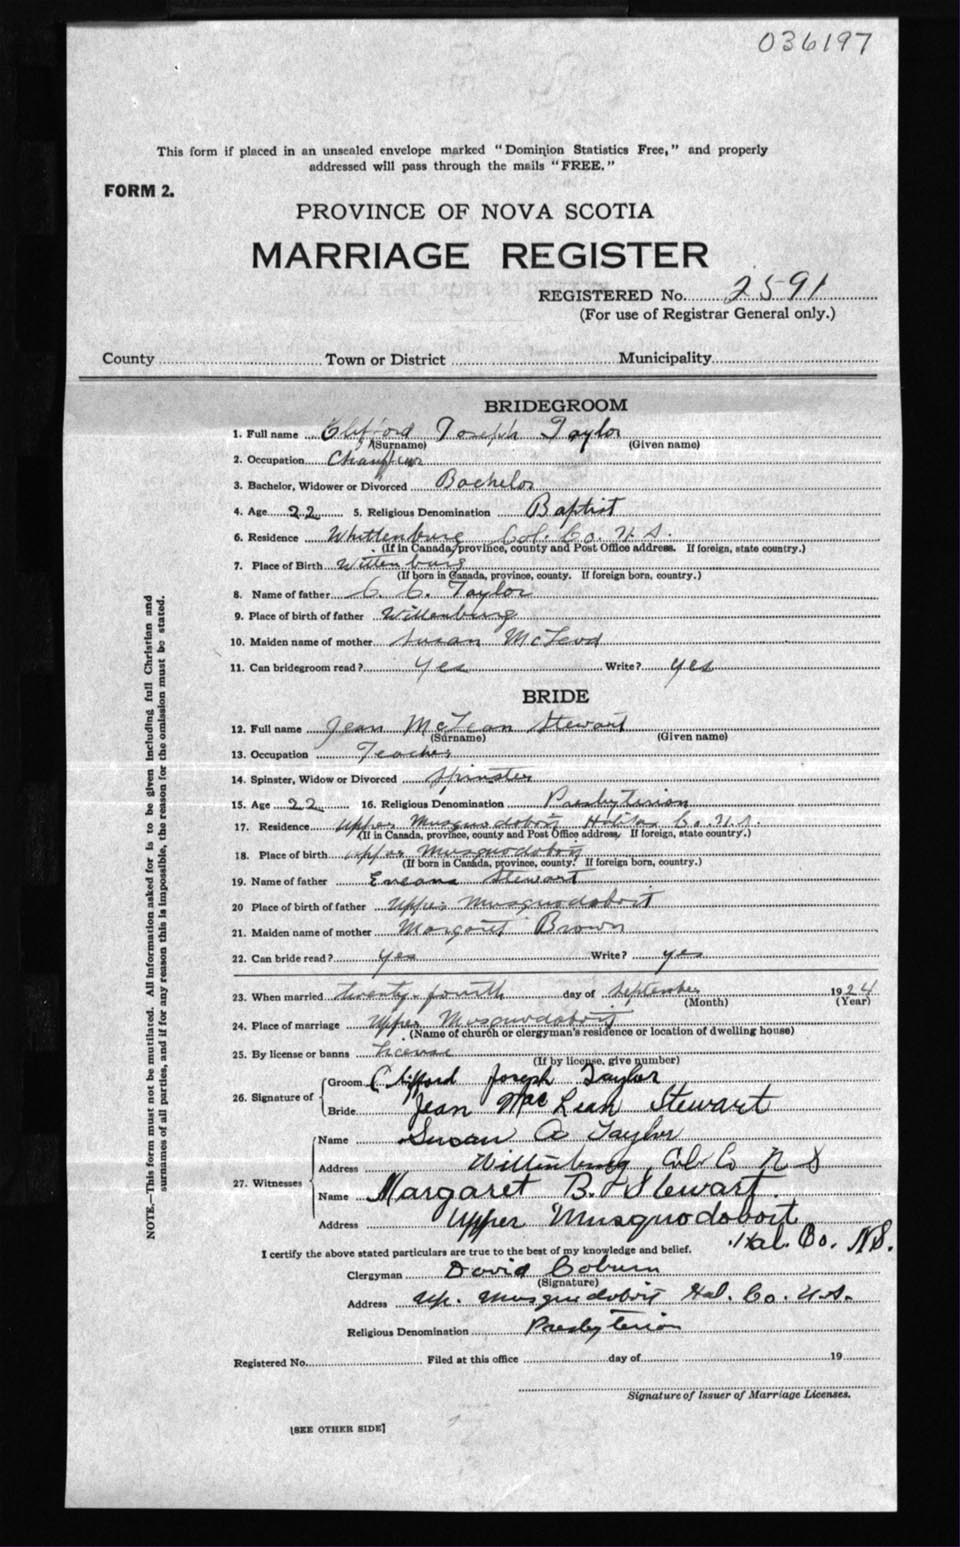 036197
This form if placed in an unsealed envelope marked "Dominion Statistics Free," and properly
addressed will pass through the mails "FREE."
FORM 2.
PROVINCE OF NOVA SCOTIA
MARRIAGE REGISTER
REGISTERED No. 2591
(For use of Registrar General only.)
County Town or District Municipality
BRIDEGROOM
1. Full name Clifford Joseph Taylor
(Surname) (Given name)
2. Occupation Chauffeur
3. Bachelor, Widower or Divorced Bachelor
4. Age 22 5. Religious Denomination Baptist
6. Residence Whittenburg Col. Co. N.S.
(If in Canada, province, county and Post Office address. If foreign, state country.)
7. Place of Birth Wittenburg
(If born in Canada, province, county. If foreign born, country.)
8. Name of father C. C. Taylor
9. Place of birth of father Wittenburg
10. Maiden name of mother Susan McLeod
11. Can bridegroom read? Yes Write? Yes
BRIDE
12. Full name Jean McLean Stewart
(Surname) (Given name)
13. Occupation Teacher
14. Spinster, Widow or Divorced Spinster
15. Age 22 16. Religious Denomination Presbyterian
17. Residence Upper Musquodoboit Halifax Co. N.S.
(If in Canada, province, county and Post Office address. If foreign, state country.)
18. Place of birth Upper Musquodoboit
(If born in Canada, province, county. If foreign born, country.)
19. Name of father Stewart
20 Place of birth of father Upper Musquodoboit
21. Maiden name of mother Margaret Brown
22. Can bride read? Yes Write? yes
23. When married twenty-fourth day of September 1924
(Month) (Year)
24. Place of marriage Upper Musquodoboit
(Name of church or clergyman's residence or location of dwelling house)
25. By license or banns License
(If by license, give number)
26. Signature of Groom Clifford Joseph Taylor
Bride Jean MacLean Stewart
27. Witnesses Name Susan A Taylor
Address Wittenburg Col. Co N S
Name Margaret B. Stewart.
Address Upper Musquodoboit
Hal. Co. N.S.
I certify the above stated particulars are true to the best of my knowledge and belief.
Clergyman David Coburn
(Signature)
Address Up. Musquodoboit Hal. Co. N.S.
Religious Denomination Presbyterian
Registered No. Filed at this office day of 19
Signature of Issuer of Marriage Licenses.
[SEE OTHER SIDE]
NOTE.—This form must not be mutilated. All information asked for is to be given including full Christian and
surnames of all parties, and if for any reason this is impossible, the reason for the omission must be stated.